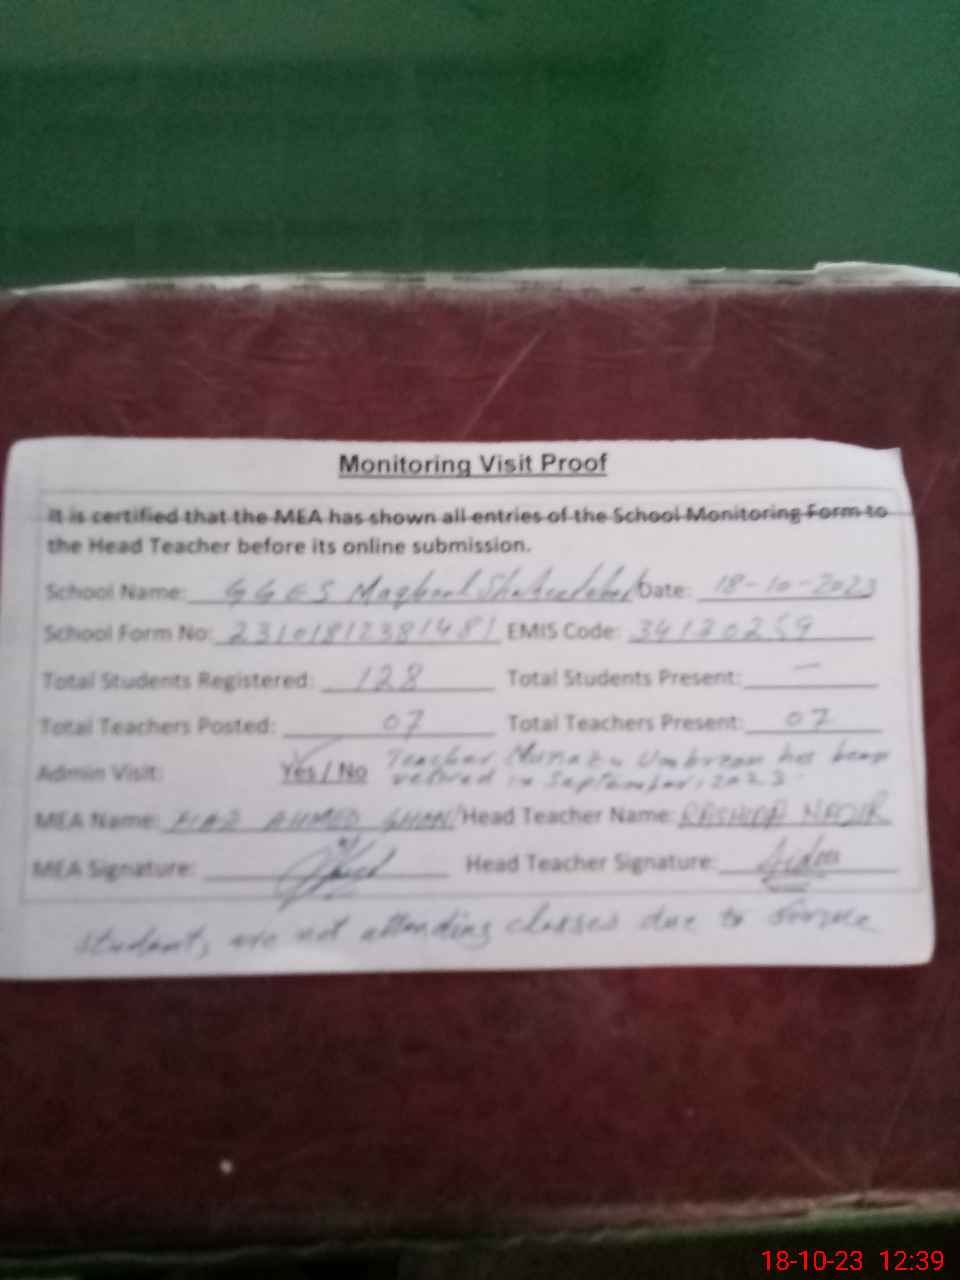 Monitoring Visit Proof
It is certified that the MEA has shown all entries of the School Monitoring Form to
the Head Teacher before its online submission.
School Name: GGES Maqbool Date: 18-10-2023
School Form No: 23101812381481 EMIS Code: 34130259
Total Students Registered: 128 Total Students Present: —
Total Teachers Posted: 07 Total Teachers Present: 07
Teacher has been
Admin Visit: Yes / No retired in September, 2023
MEA Name: AHMED Head Teacher Name: RASHIDA
MEA Signature: Head Teacher Signature:
students are not attending classes due to
18-10-23 12:39